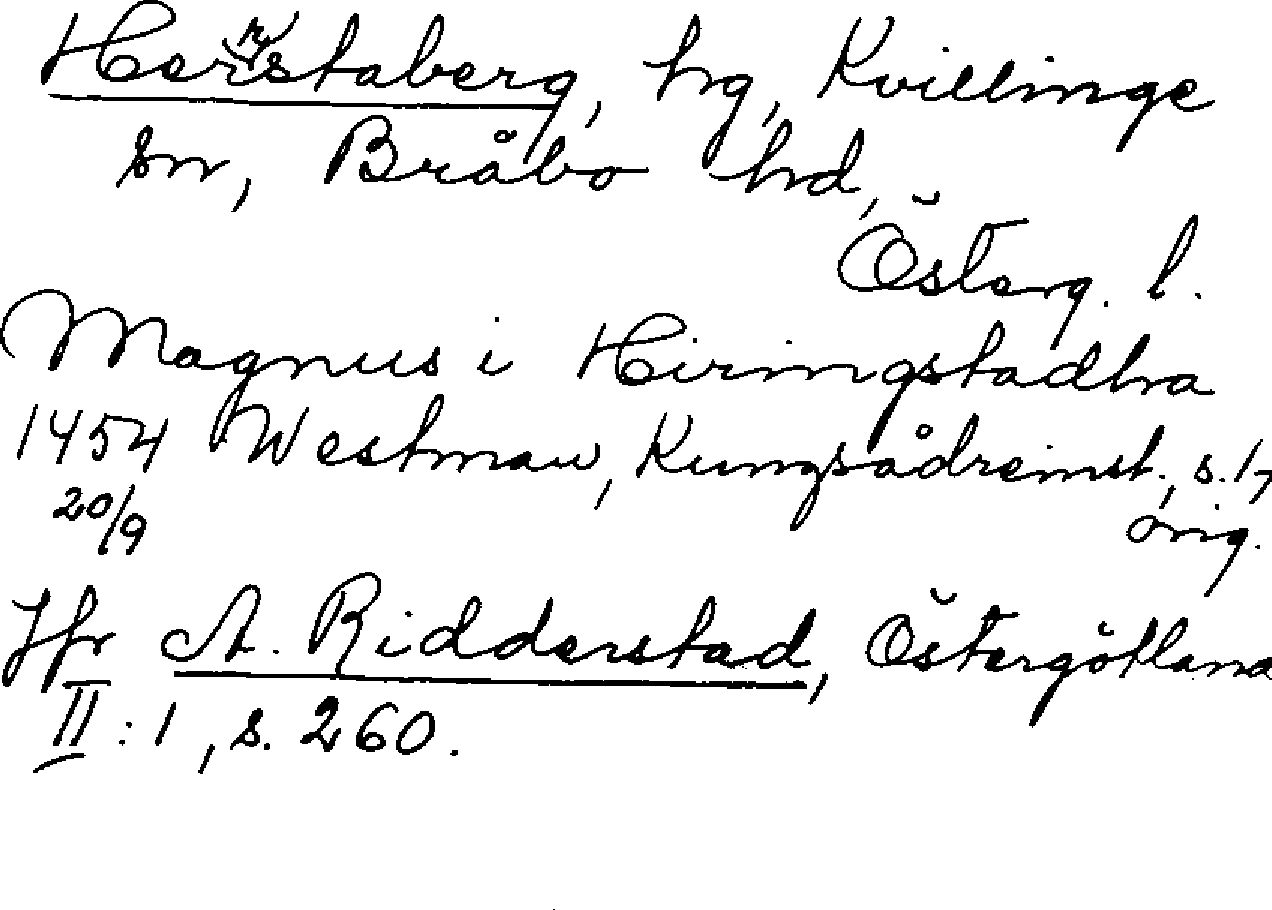 Herrstaberg, hg, Kvillinge
sn, Bråbo hd,
Österg. l.
Magnus i Hiringstadhra
1454 Westman, Kungsådreinst., s. 17
20/9 orig.
Jfr A. Ridderstad, Östergötland
II:1, s. 260.